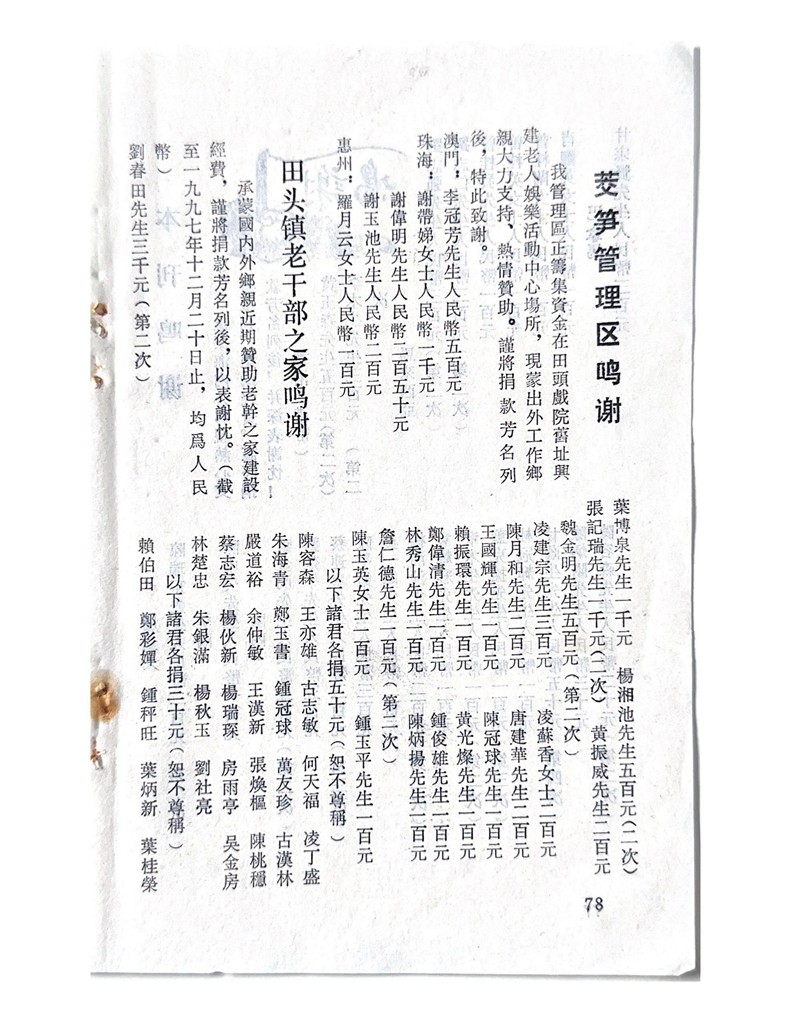 茭笋管理区鸣谢
我管理區正籌集資金在田頭戲院舊址興
建老人娛樂活動中心場所，現蒙出外工作鄉
親大力支持、熱情贊助。謹將捐款芳名列
後，特此致謝。
澳門：李冠芳先生人民幣五百元
珠海：謝帶娣女士人民幣一千元
謝偉明先生人民幣二百五十元
謝玉池先生人民幣二百元
惠州：羅月云女士人民幣一百元
田头镇老干部之家鸣谢
承蒙國内外鄉親近期贊助老幹之家建設
經費，謹將捐款芳名列後，以表謝忱。（截
至一九九七年十二月二十日止，均爲人民
幣）
劉春田先生三千元（第二次）
葉博泉先生一千元 楊湘池先生五百元（二次）
張記瑞先生一千元（二次） 黄振威先生二百元
魏金明先生五百元（第二次）
凌建宗先生三百元 凌蘇香女士二百元
陳月和先生二百元 唐建華先生二百元
王國輝先生一百元 陳冠球先生一百元
賴振環先生一百元 黄光燦先生一百元
鄭偉清先生一百元 鍾俊雄先生一百元
林秀山先生一百元 陳炳揚先生一百元
詹仁德先生一百元（第二次）
陳玉英女士一百元 鍾玉平先生一百元
以下諸君各捐五十元（恕不尊稱）
陳容森 王亦雄 古志敏 何天福 凌丁盛
朱海青 鄭玉書 鍾冠球 萬友珍 古漢林
嚴道裕 余仲敏 王漢新 張煥樞 陳桃穩
蔡志宏 楊伙新 楊瑞琛 房雨亭 吴金房
林楚忠 朱銀滿 楊秋玉 劉社亮
以下諸君各捐三十元（恕不尊稱）
賴伯田 鄭彩嬋 鍾秤旺 葉炳新 葉桂榮
78